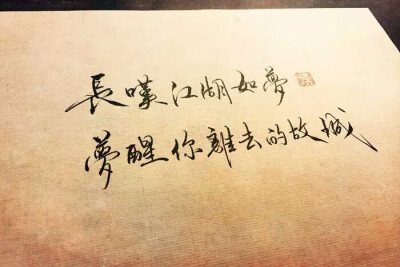 長嘆江湖如夢
夢醒你離去的故城